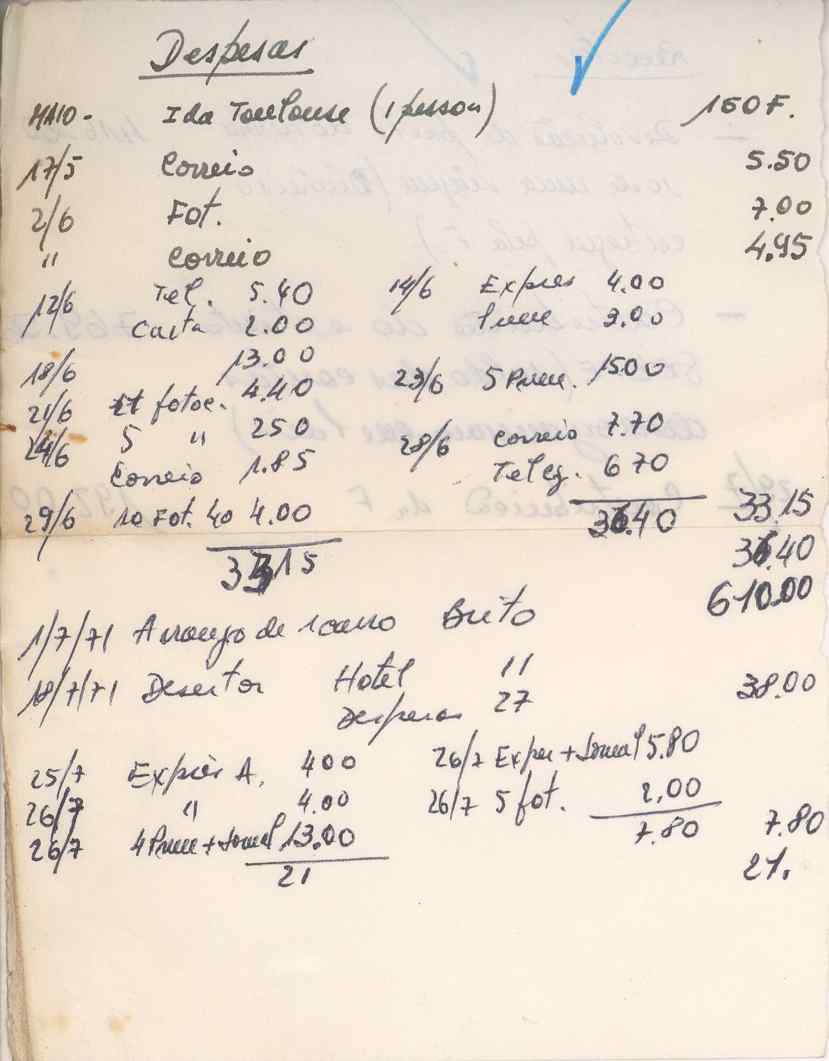 Despesas
MAIO - Ida Toulouse (1 pessoa) 150 F.
17/5 Correio 5.50
2/6 Fot. 7.00
" Correio 4.95
12/6 Tel. 5.40 14/6 Expres 4.00
Carta 2.00 Pneu 3.00
18/6 13.00
21/6 fotoc. 4.40 23/6 5 Pneu. 1500
24/6 5 " 250 28/6 Correio 7.70
Correio 1.85 Teleg. 670
29/6 10 Fot. 40 4.00 36.40 33.15
33 15 36.40
610.00
1/7/71 Arranjo de 1 carro Brito
18/7/71 Desertor Hotel 11 38.00
Despesas 27
25/7 Exprès A. 400 26/7 Expres + Jornal 5.80
26/7 " 4.00 26/7 5 fot. 2,00
26/7 4 Pneu + Jornal 13.00 7.80 7.80
21 21.